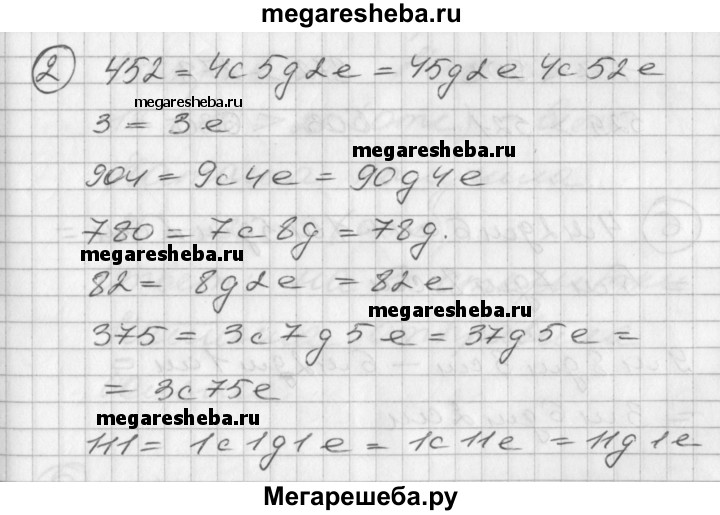 megaresheba.ru
2 452 = 4с 5д 2е = 45д 2е 4с 52е
megaresheba.ru
3 = 3е
megaresheba.ru
904 = 9с 4е = 90д 4е
780 = 7с 8д = 78д.
megaresheba.ru
82 = 8д 2е = 82е
megaresheba.ru
375 = 3с 7д 5е = 37д 5е =
= 3с 75е
megaresheba.ru
111 = 1с 1д 1е = 1с 11е = 11д 1е
Мегарешеба.ру